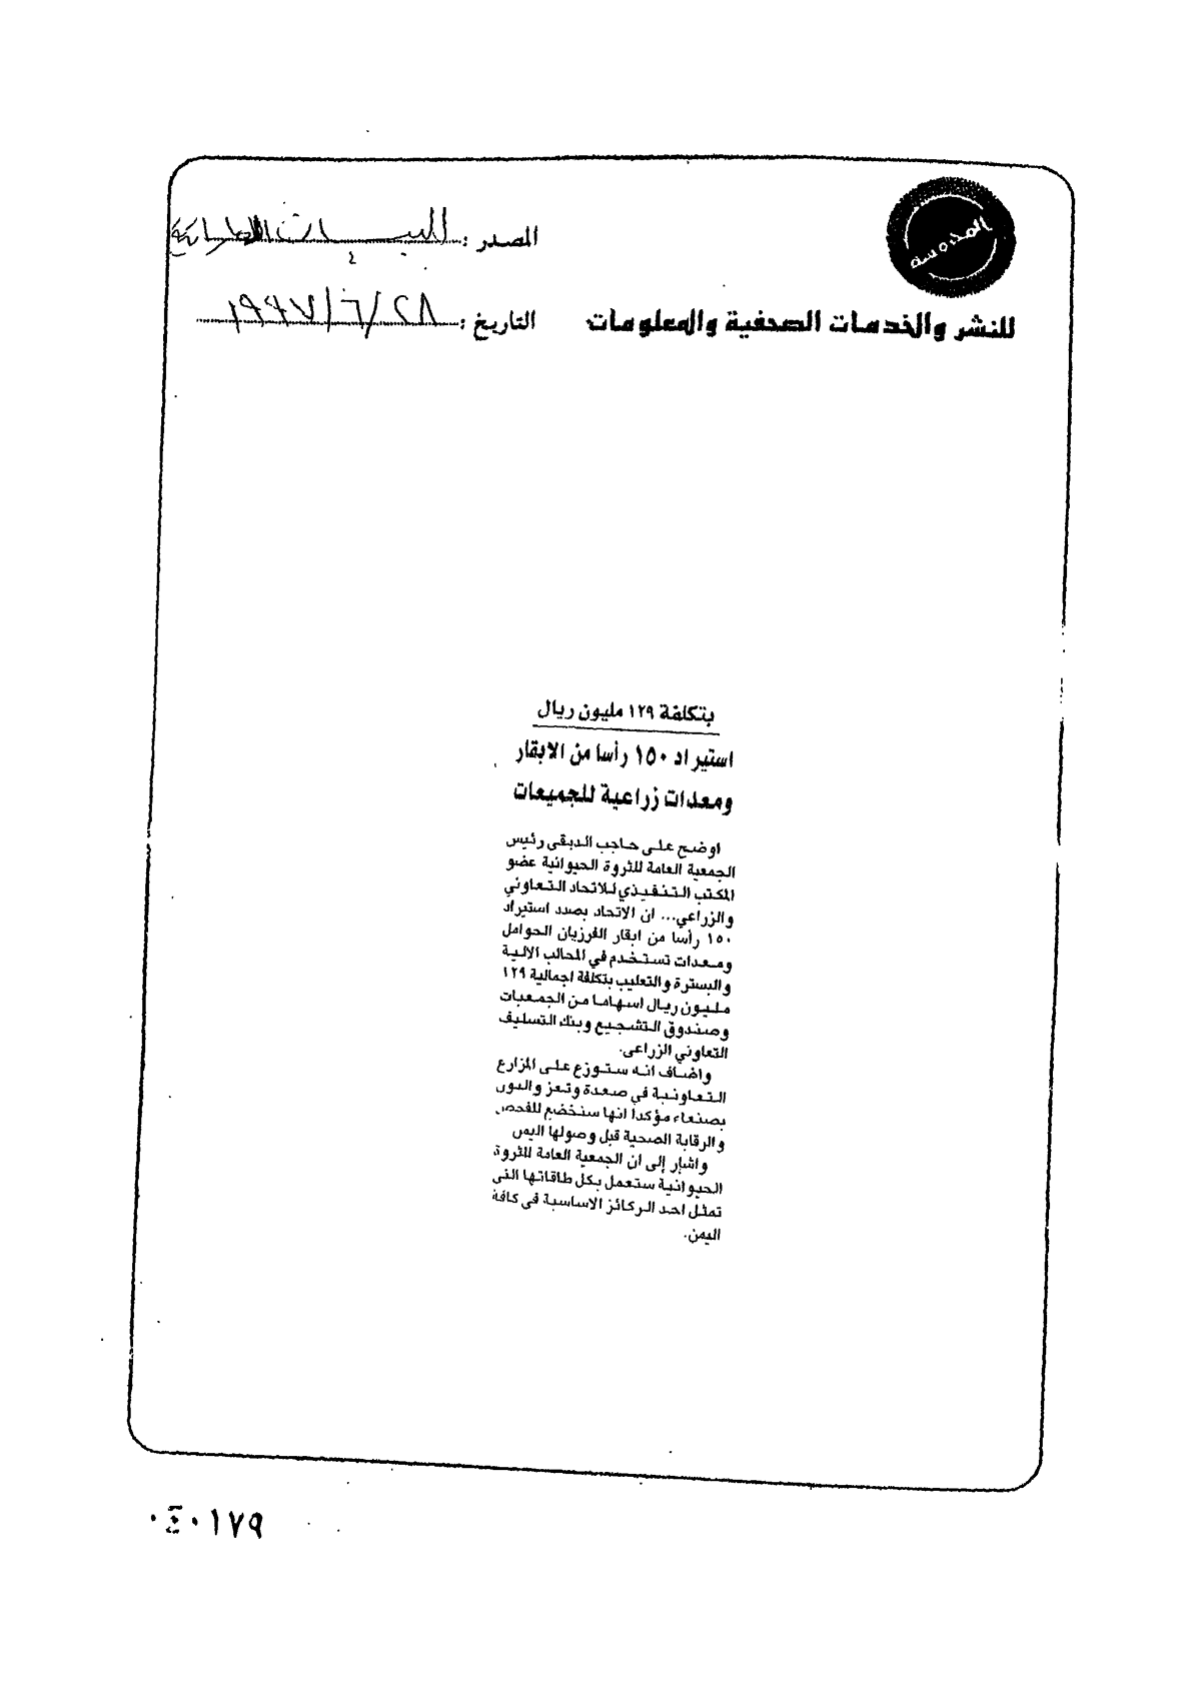 المصدر :
التاريخ : ٢٨/٦/١٩٩٧
للنشر والخدمات الصحفية والمعلومات
بتكلفة ١٢٩ مليون ريال
استيراد ١٥٠ رأسا من الابقار
ومعدات زراعية للجميعات
اوضح على حاجب الدبقى رئيس
الجمعية العامة للثروة الحيوانية عضو
المكتب التنفيذي للاتحاد التعاوني
والزراعي... ان الاتحاد بصدد استيراد
١٥٠ رأسا من ابقار الفرزيان الحوامل
ومعدات تستخدم في المحالب الالية
والبسترة والتعليب بتكلفة اجمالية ١٢٩
مليون ريال اسهاما من الجمعيات
وصندوق التشجيع وبنك التسليف
التعاوني الزراعى.
واضاف انه ستوزع على المزارع
التعاونية في صعدة وتعز والبون
بصنعاء مؤكدا انها ستخضع للفحص
والرقابة الصحية قبل وصولها اليمن
واشار إلى ان الجمعية العامة للثروة
الحيوانية ستعمل بكل طاقاتها التى
تمثل احد الركائز الاساسية في كافة
اليمن.
٠٤٠١٧٩